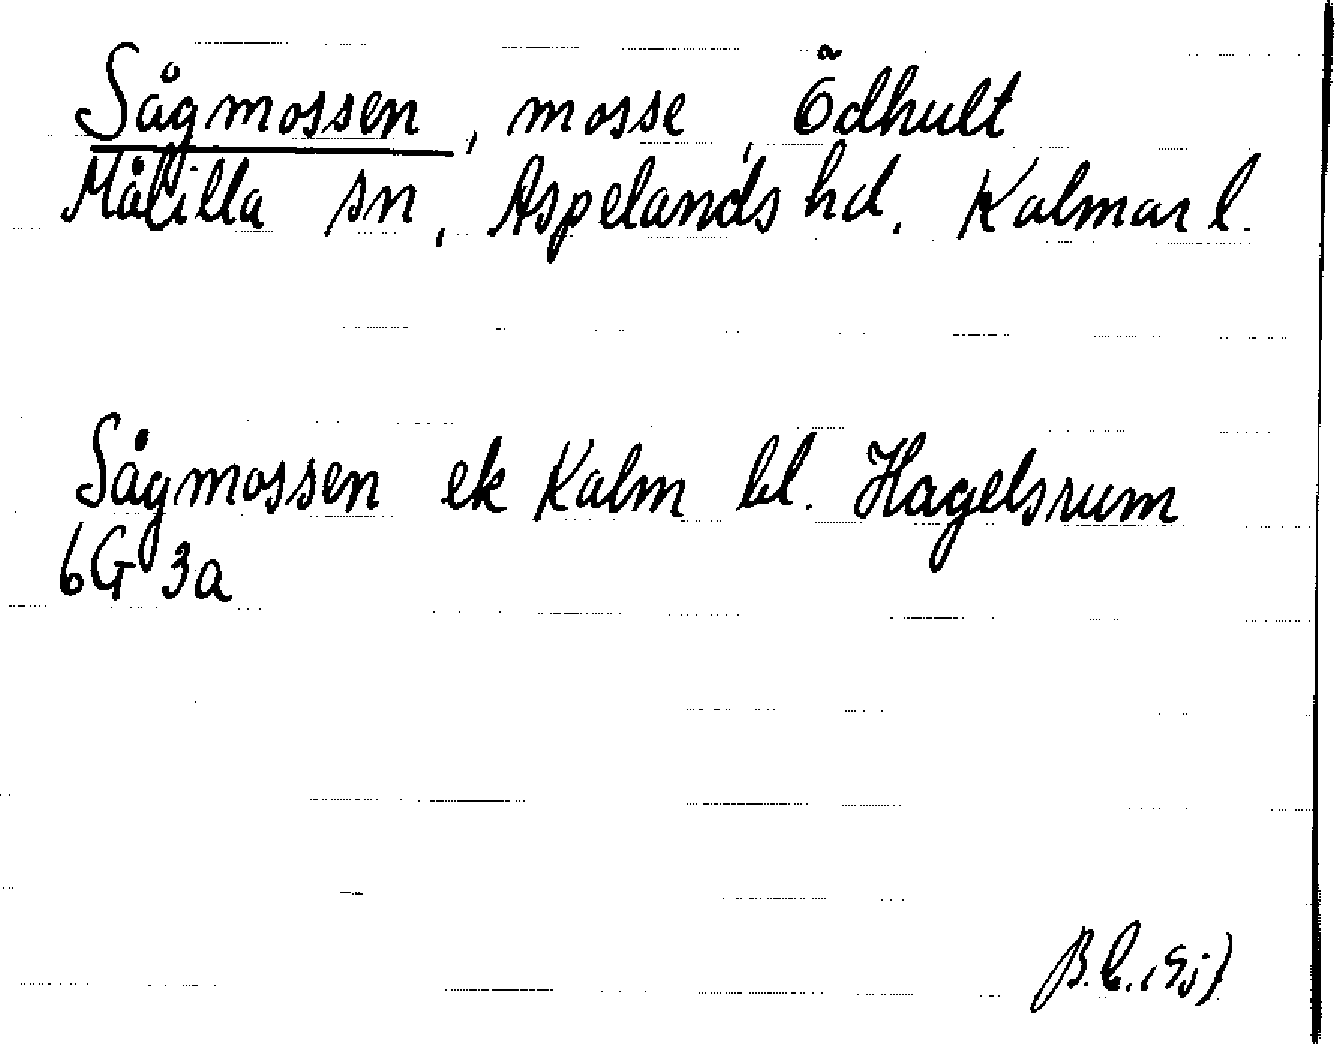 Sågmossen, mosse, Ödhult
Målilla sn, Aspelands hd, Kalmar l.
Sågmossen ek Kalm bl. Hagelsrum
6G 3a